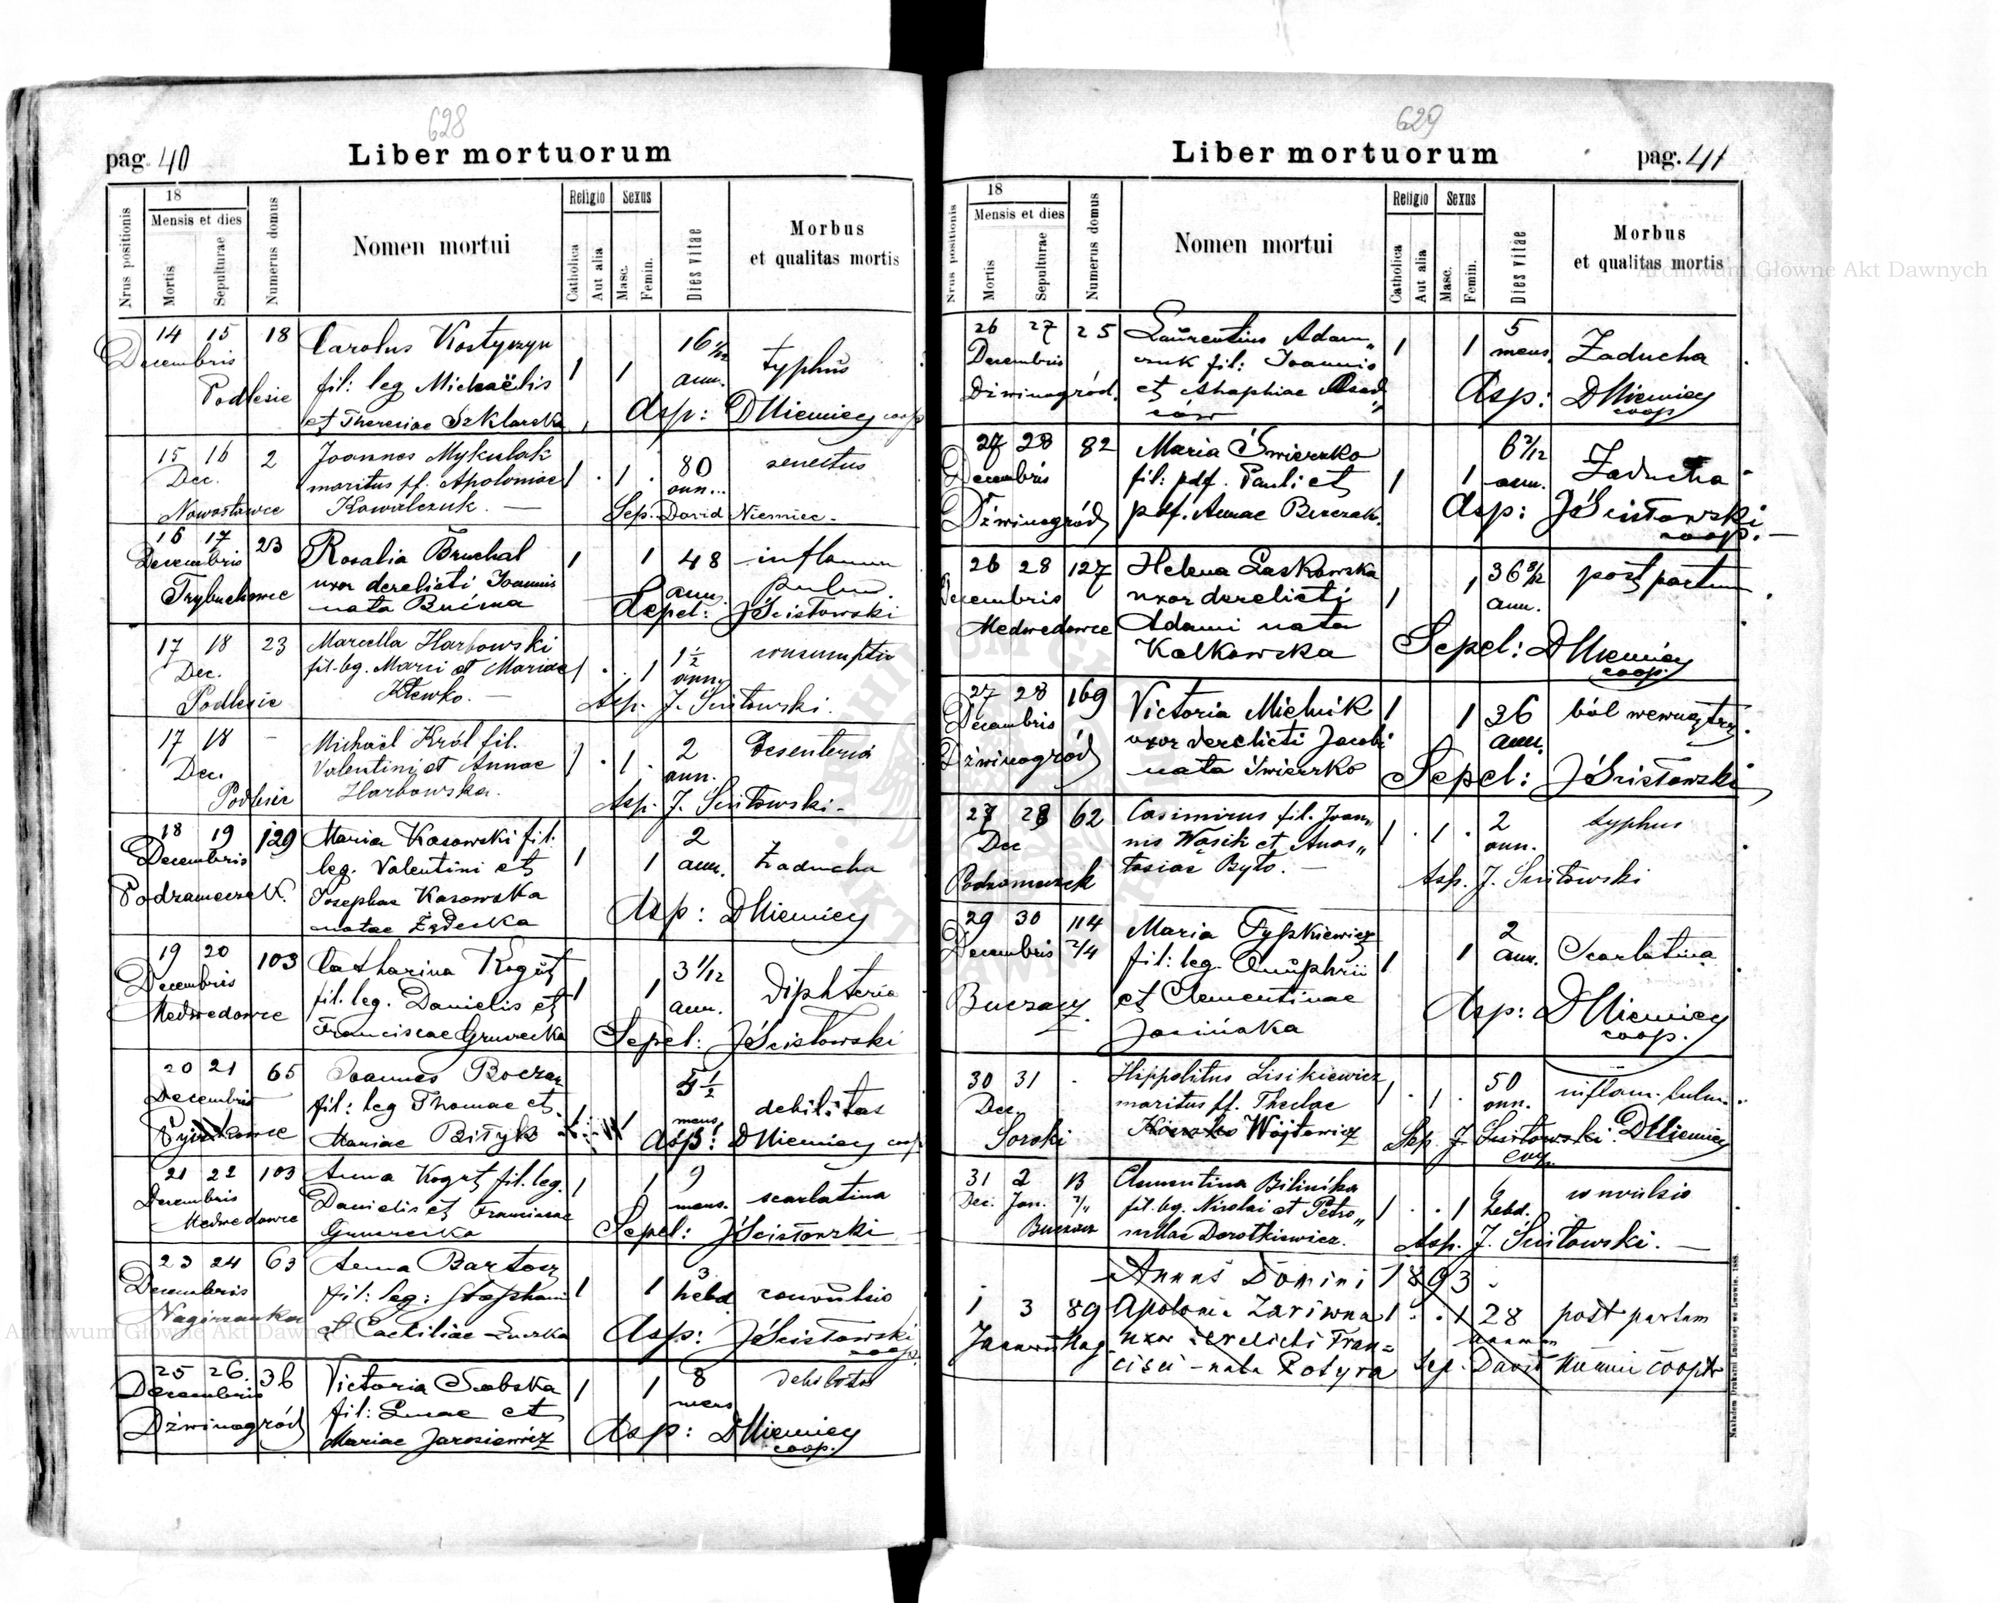 628
pag. 40 Liber mortuorum
Nrus positionis
18
Mensis et dies
Mortis
Sepulturae
Numerus domus
Nomen mortui
Religio
Catholica
Aut alia
Sexus
Masc.
Femin.
Dies vitae
Morbus
et qualitas mortis
14 15 18 Carolus Kostyszyn 16 4/12
Decembris fil: leg Michaëlis 1 1 ann. typhus
Podlesie et Theresiae Szklarska Asp: DNiemiec coop
15 16 2 Joannes Mykulak 80 senectus
Dec. maritus pf. Apoloniae 1 . 1 . ann...
Nowostawce Kowalczuk. — Sep. David Niemiec.
16 17 23 Rosalia Bruchal 1 1 48 inflamm
Decembris uxor derelicti Joannis ann. pulm.
Trybuchowce nata Bućma Sepel: JŚcisłowski
17 18 23 Marcella Harbowski 1 1/2 consumptio
Dec. fil. leg. Marci et Mariae 1 . . 1 ann
Podlesie Klewko. — Asp. J. Ścisłowski.
17 18 — Michaël Król fil. 2 Desenteria
Dec. Valentini et Annae 1 . 1 . ann.
Podlesie Harbowska. Asp. J. Ścisłowski.
18 19 129 Maria Kasowski fil. 2
Decembris leg. Valentini et 1 1 ann. Zaducha
Podzameczek Josephae Kasowska Asp: DNiemiec
natae
19 20 103 Catharina Kogut 3 1/12
Decembris fil. leg. Danielis et 1 1 ann. Diphteria
Medwedowce Franciscae Gruszecka Sepel: JŚcisłowski
20 21 65 Joannes Boczar 1/2
Decembris fil: leg Thomae et mens debilitas
Mariae Biłyk Asp: DNiemiec coop
21 22 103 Anna Kogut fil. leg. 1 1 9 scarlatina
Decembris Danielis et Franciscae mens.
Medwedowce Gruszecka Sepel: JŚcisłowski
23 24 63 Anna Bartosz 3
Decembris fil: leg: Stephani 1 1 hebd. convulsio
Nagórzanka et Caeciliae Asp: JŚcisłowski
coop.
25 26. 36 Victoria Sobska 1 1 8 debilitas
Decembris fil: Lucae et mens
Dźwinogród Mariae Jarosiewicz Asp: DNiemiec
coop.
629
Liber mortuorum pag. 41
Nrus positionis
18
Mensis et dies
Mortis
Sepulturae
Numerus domus
Nomen mortui
Religio
Catholica
Aut alia
Sexus
Masc.
Femin.
Dies vitae
Morbus
et qualitas mortis
26 27 25 Laurentius Adam„ 5
Decembris czuk fil: Joannis 1 1 mens. Zaducha
Dźwinogród. et Asap: DNiemiec
coop
27 28 82 Maria Świerzko 6 2/12
Decembris fil: pdf. Pauli et 1 1 ann. Zaducha
Dźwinogród pdf. Annae Asp: JŚcisłowski
coop. —
26 28 127 Helena Laskowska 36 8/12 post partum
Decembris uxor derelicti 1 1 ann.
Medwedowce Adami nata Sepel: DNiemiec
Kalkowska coop.
27 28 169 Victoria Mielnik 1 1 36 ból wewnątrz
Decembris uxor derelicti Jacobi ann.
Dźwinogród nata Świerzko Sepel: JŚcisłowski
27 28 62 Casimirus fil. Joan„ 2 typhus
Dec nis Wąsik et Anas„ 1 . 1 . ann.
Podzameczek tasiae Byto. — Asp. J. Ścisłowski
29 30 114 Maria Tyszkiewicz 2
Decembris 2/4 fil: leg. Onuphrii 1 1 ann. Scarlatina
Buczacz et Clementinae Asp: DNiemiec
Jasińska coop.
30 31 . Hippolitus Lisikiewicz 50 inflam. pulm.
Dec. maritus pf. Theclae 1 . 1 . ann.
Soroki Wójtowicz Sep. J. Ścisłowski DNiemiec
31 2 13 Clementina Bilinska hebd. convulsio
Dec. Jan. fil. leg. Nicolai et Petro„ 1 . . 1
Buczacz nellae Dorotkiewicz. Asp. J. Ścisłowski. —
Annus Domini 1893
1 3 89 Apolonia Zariwna 1 . . 1 28 post partum
Januarii Nag uxor derelicti Fran=
cisci — nata Potyra Sep. David Niemiec coopr
Nakładem Drukarni Ludowej we Lwowie. 1888.
Archiwum Główne Akt Dawnych
Archiwum Główne Akt Dawnych